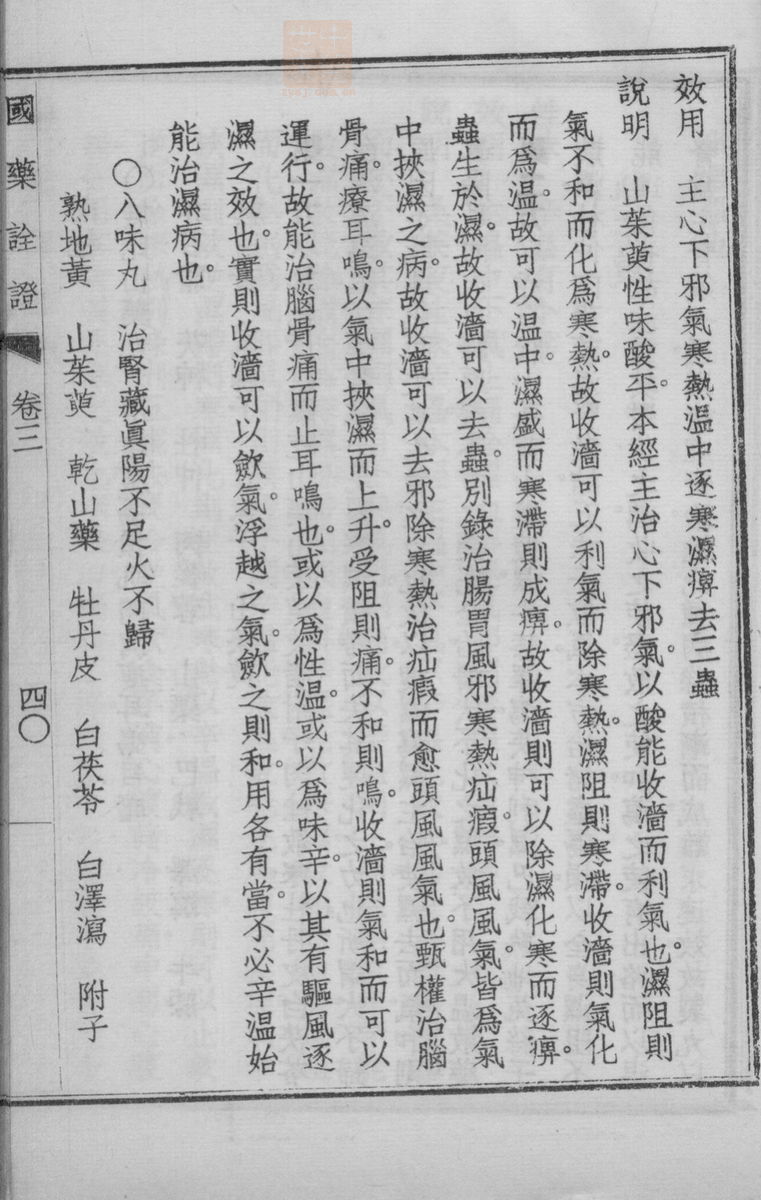 效用　主心下邪氣寒熱溫中逐寒濕痹去三蟲
說明　山茱萸性味酸平。本經主治心下邪氣。以酸能收濇而利氣也。濕阻則
氣不和而化爲寒熱。故收濇可以利氣而除寒熱。濕阻則寒滯。收濇則氣化
而爲溫。故可以溫中。濕盛而寒滯則成痹。故收濇則可以除濕化寒而逐痹。
蟲生於濕。故收濇可以去蟲。別錄治腸胃風邪寒熱疝瘕。頭風風氣。皆爲氣
中挾濕之病。故收濇可以去邪除寒熱治疝瘕而愈頭風風氣也。甄權治腦
骨痛。療耳鳴。以氣中挾濕而上升。受阻則痛。不和則鳴。收濇則氣和而可以
運行。故能治腦骨痛而止耳鳴也。或以爲性溫。或以爲味辛。以其有驅風逐
濕之效也。實則收濇可以歛氣。浮越之氣。歛之則和。用各有當。不必辛溫始
能治濕病也。
○八味丸　治腎藏眞陽不足火不歸
熟地黃　山茱萸　乾山藥　牡丹皮　白茯苓　白澤瀉　附子
國藥詮證　卷三　四○